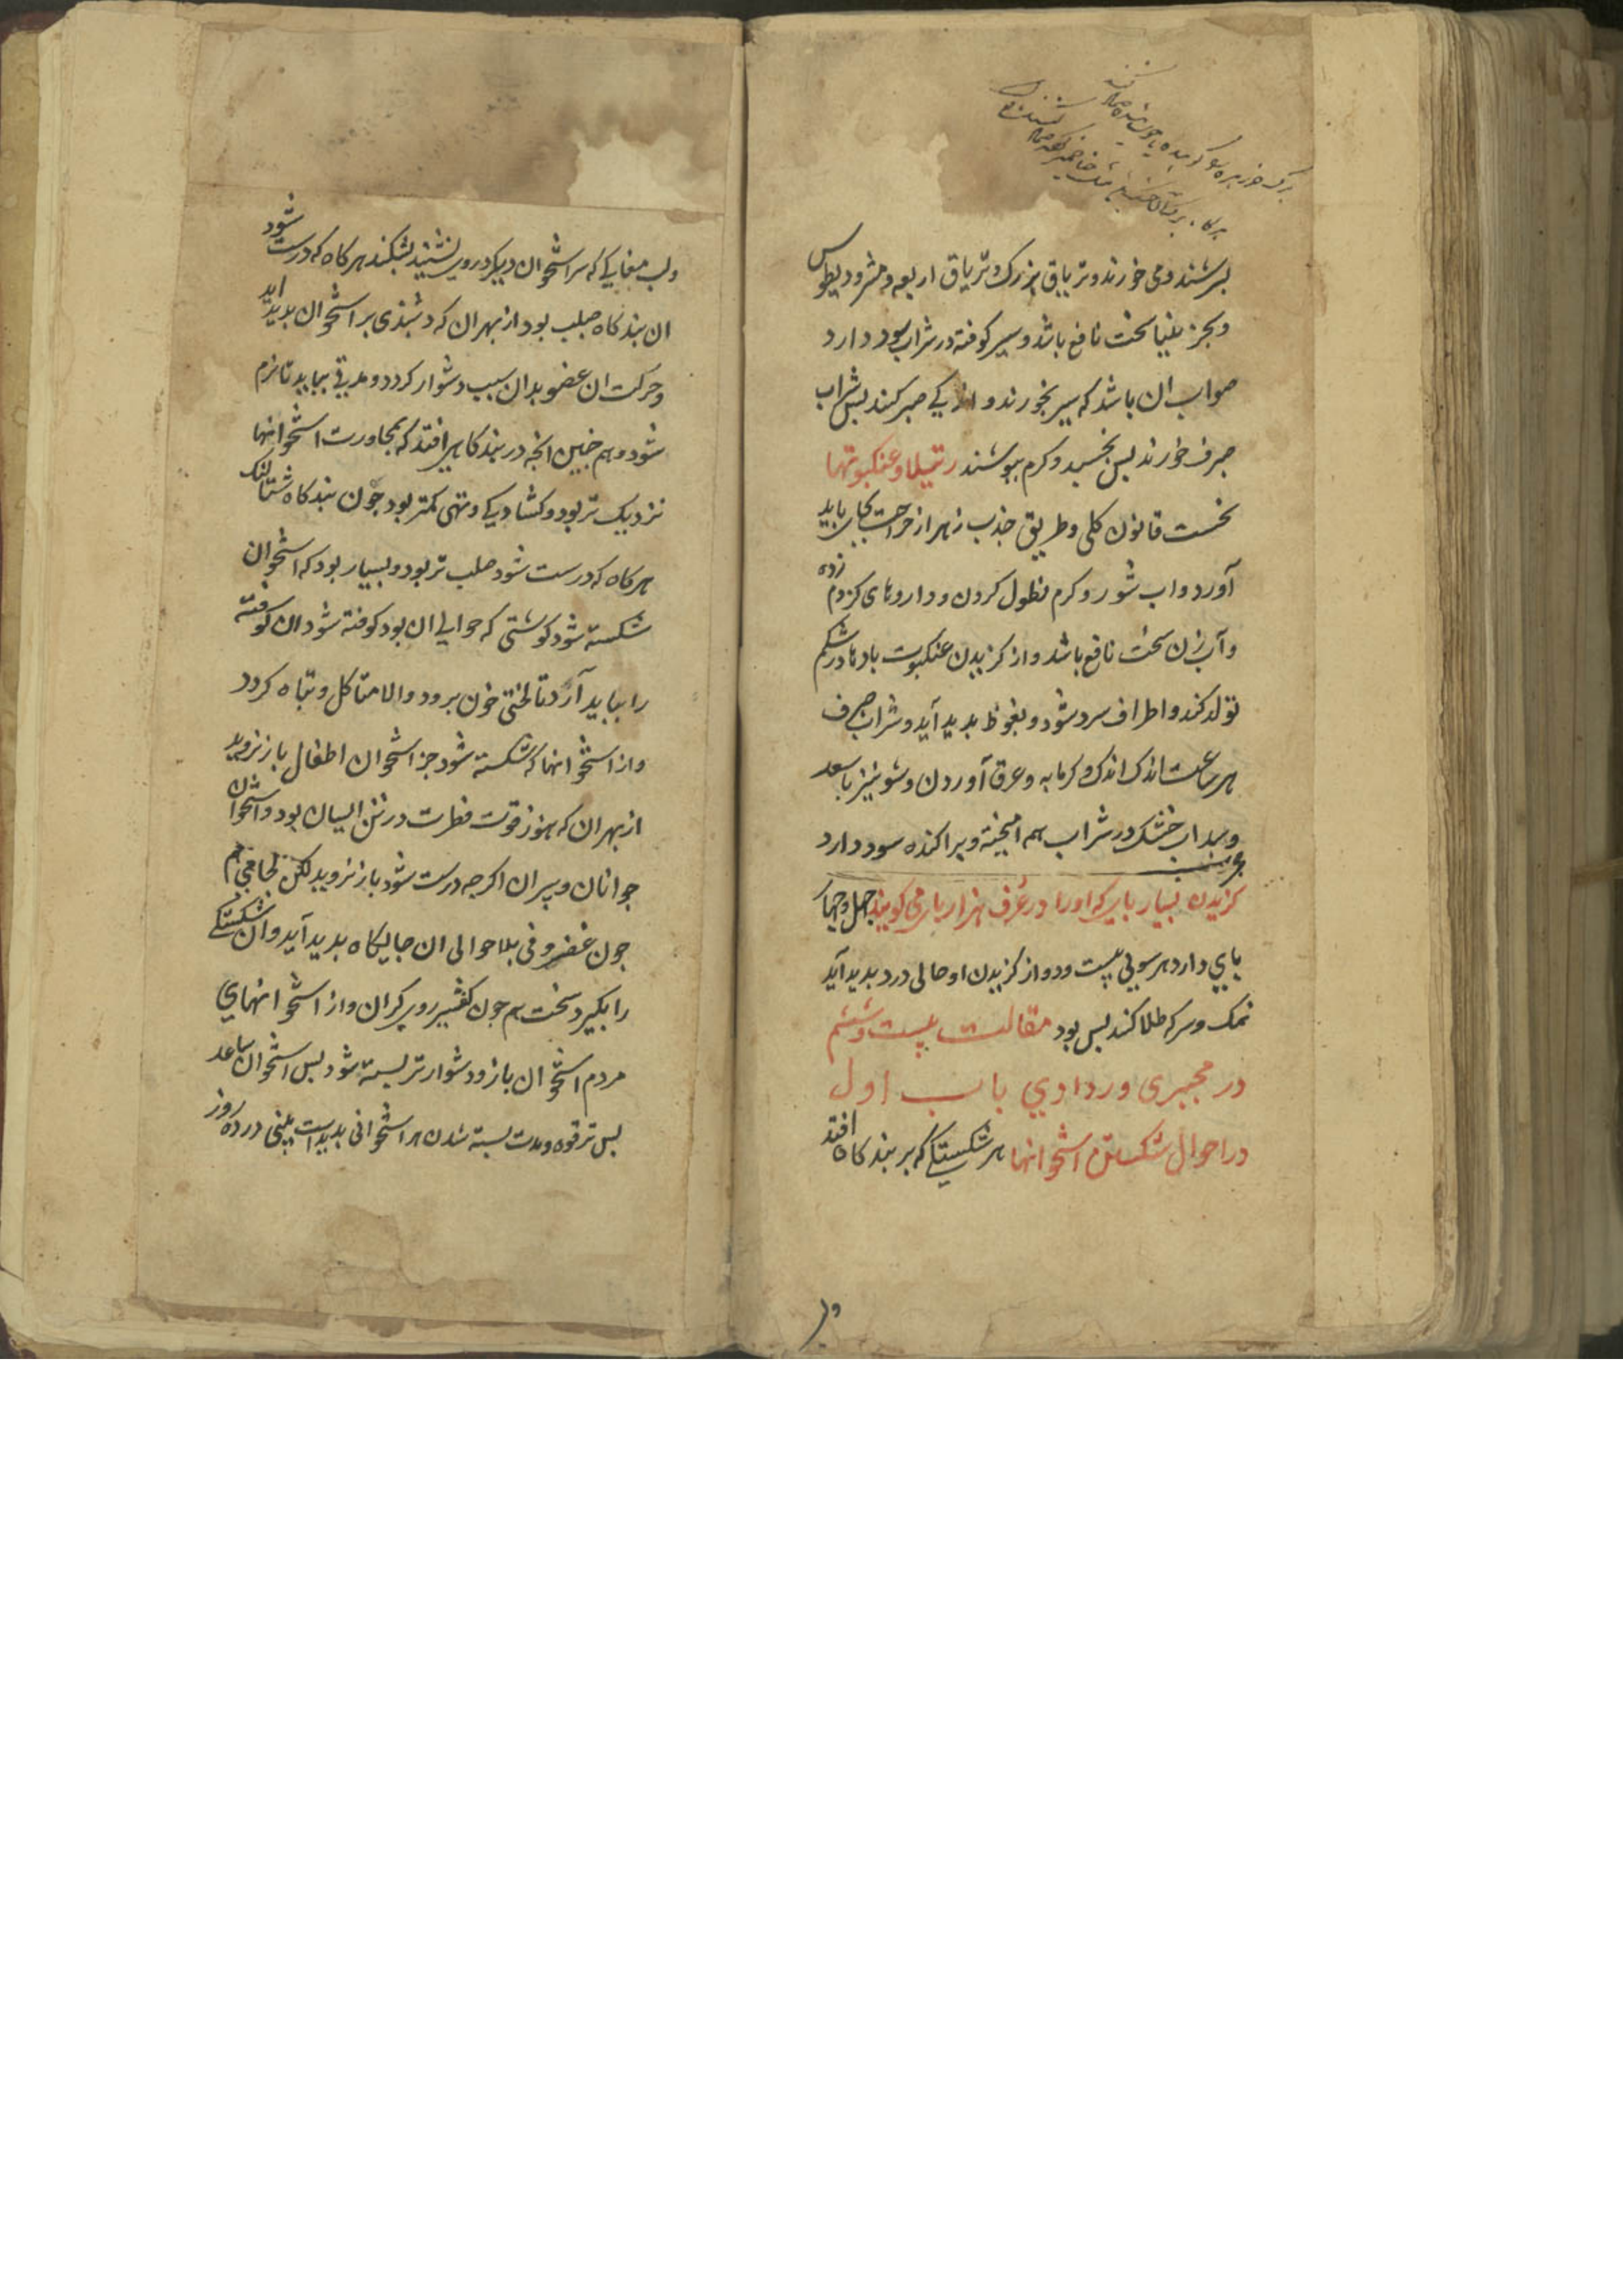 برک خرزهره
بسرشند و می خورند و تریاق بزرک و تریاق اربعه و مثرودیطوس
و بجز بلنیا سخت نافع باشد و سیر کوفته در شراب سود دارد
صواب ان باشد که سیر بخورند و اندکی صبر کنند بس شراب
صرف خورند بس بخسبد و کرم ببوشند رتیلا و عنکبوتها
نخست قانون کلی و طریق جذب زهر از جراحت بجای باید
آورد و اب شور و کرم نطول کردن و داروهای کزدم زده
و آب زن سخت نافع باشد و از کزیدن عنکبوت بادها در شکم
تولد کند و اطراف سرد شود و نغوظ بدید آید و شراب صرف
هر ساعت اندک اندک و کرمابه و عرق آوردن و شونیز با سعد
و سداب خشک در شراب بهم امیخته و براکنده سود دارد
کزیدن بسیار بای که اورا در عرف هزار بای می کویند جهل و جهار
بای دارد هر سویی بیست و دو از کزیدن او حالی درد بدید آید
نمک و سرکه طلا کند بس بود مقالت بیست و ششم
در مجبری و ردادی باب اول
در احوال شکستن اشخوانها هر شکستی که بر بندکاه افتد
و لب مغاکی که سر اشخوان دیکر در وی نشیند بشکند هر کاه که درست شود
ان بندکاه صلب بود از بهر ان که دشبذی بر اشخوان بدید اید
و حرکت ان عضو بدان سبب دشوار کردد و مدتی بباید تا نرم
شود و هم جنین انجه در بندکاهی افتد که بمجاورت اشخوانها
نزدیک تر بود و کشادیکی و تهی کمتر بود جون بندکاه شتالنک
هر کاه که درست شود صلب تر بود و بسیار بود که اشخوان
شکسته شود کوشتی که حوالی ان بود کوفته شود ان کوفته
را بباید آزد تا لختی خون برود و الا متاکل و تباه کردد
و از اشخوانها که شکسته شود جز اشخوان اطفال باز نروید
از بهر ان که هنوز قوت فطرت در تن ایسان بود و اشخوان
جوانان و بیران اکرجه درست شود باز نروید لکن لحامی هم
جون غضروفی بلا حوالی ان جایکاه بدید آید و ان شکستکی
را بکیرد سخت هم جون کفشیر رویکران و از اشخوانهای
مردم اشخوان بازو دشوارتر بسته شود بس اشخوان ساعد
بس ترقوه و مدت بسته شدن هر اشخوانی بدیداست بینی در ده روز